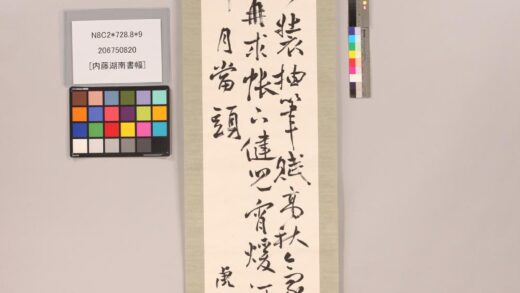 N8C2*728.8*9
206750820
[内藤湖南書幅]
装抽筆賦高秋
求帳下健児宵煖
月當頭
虎